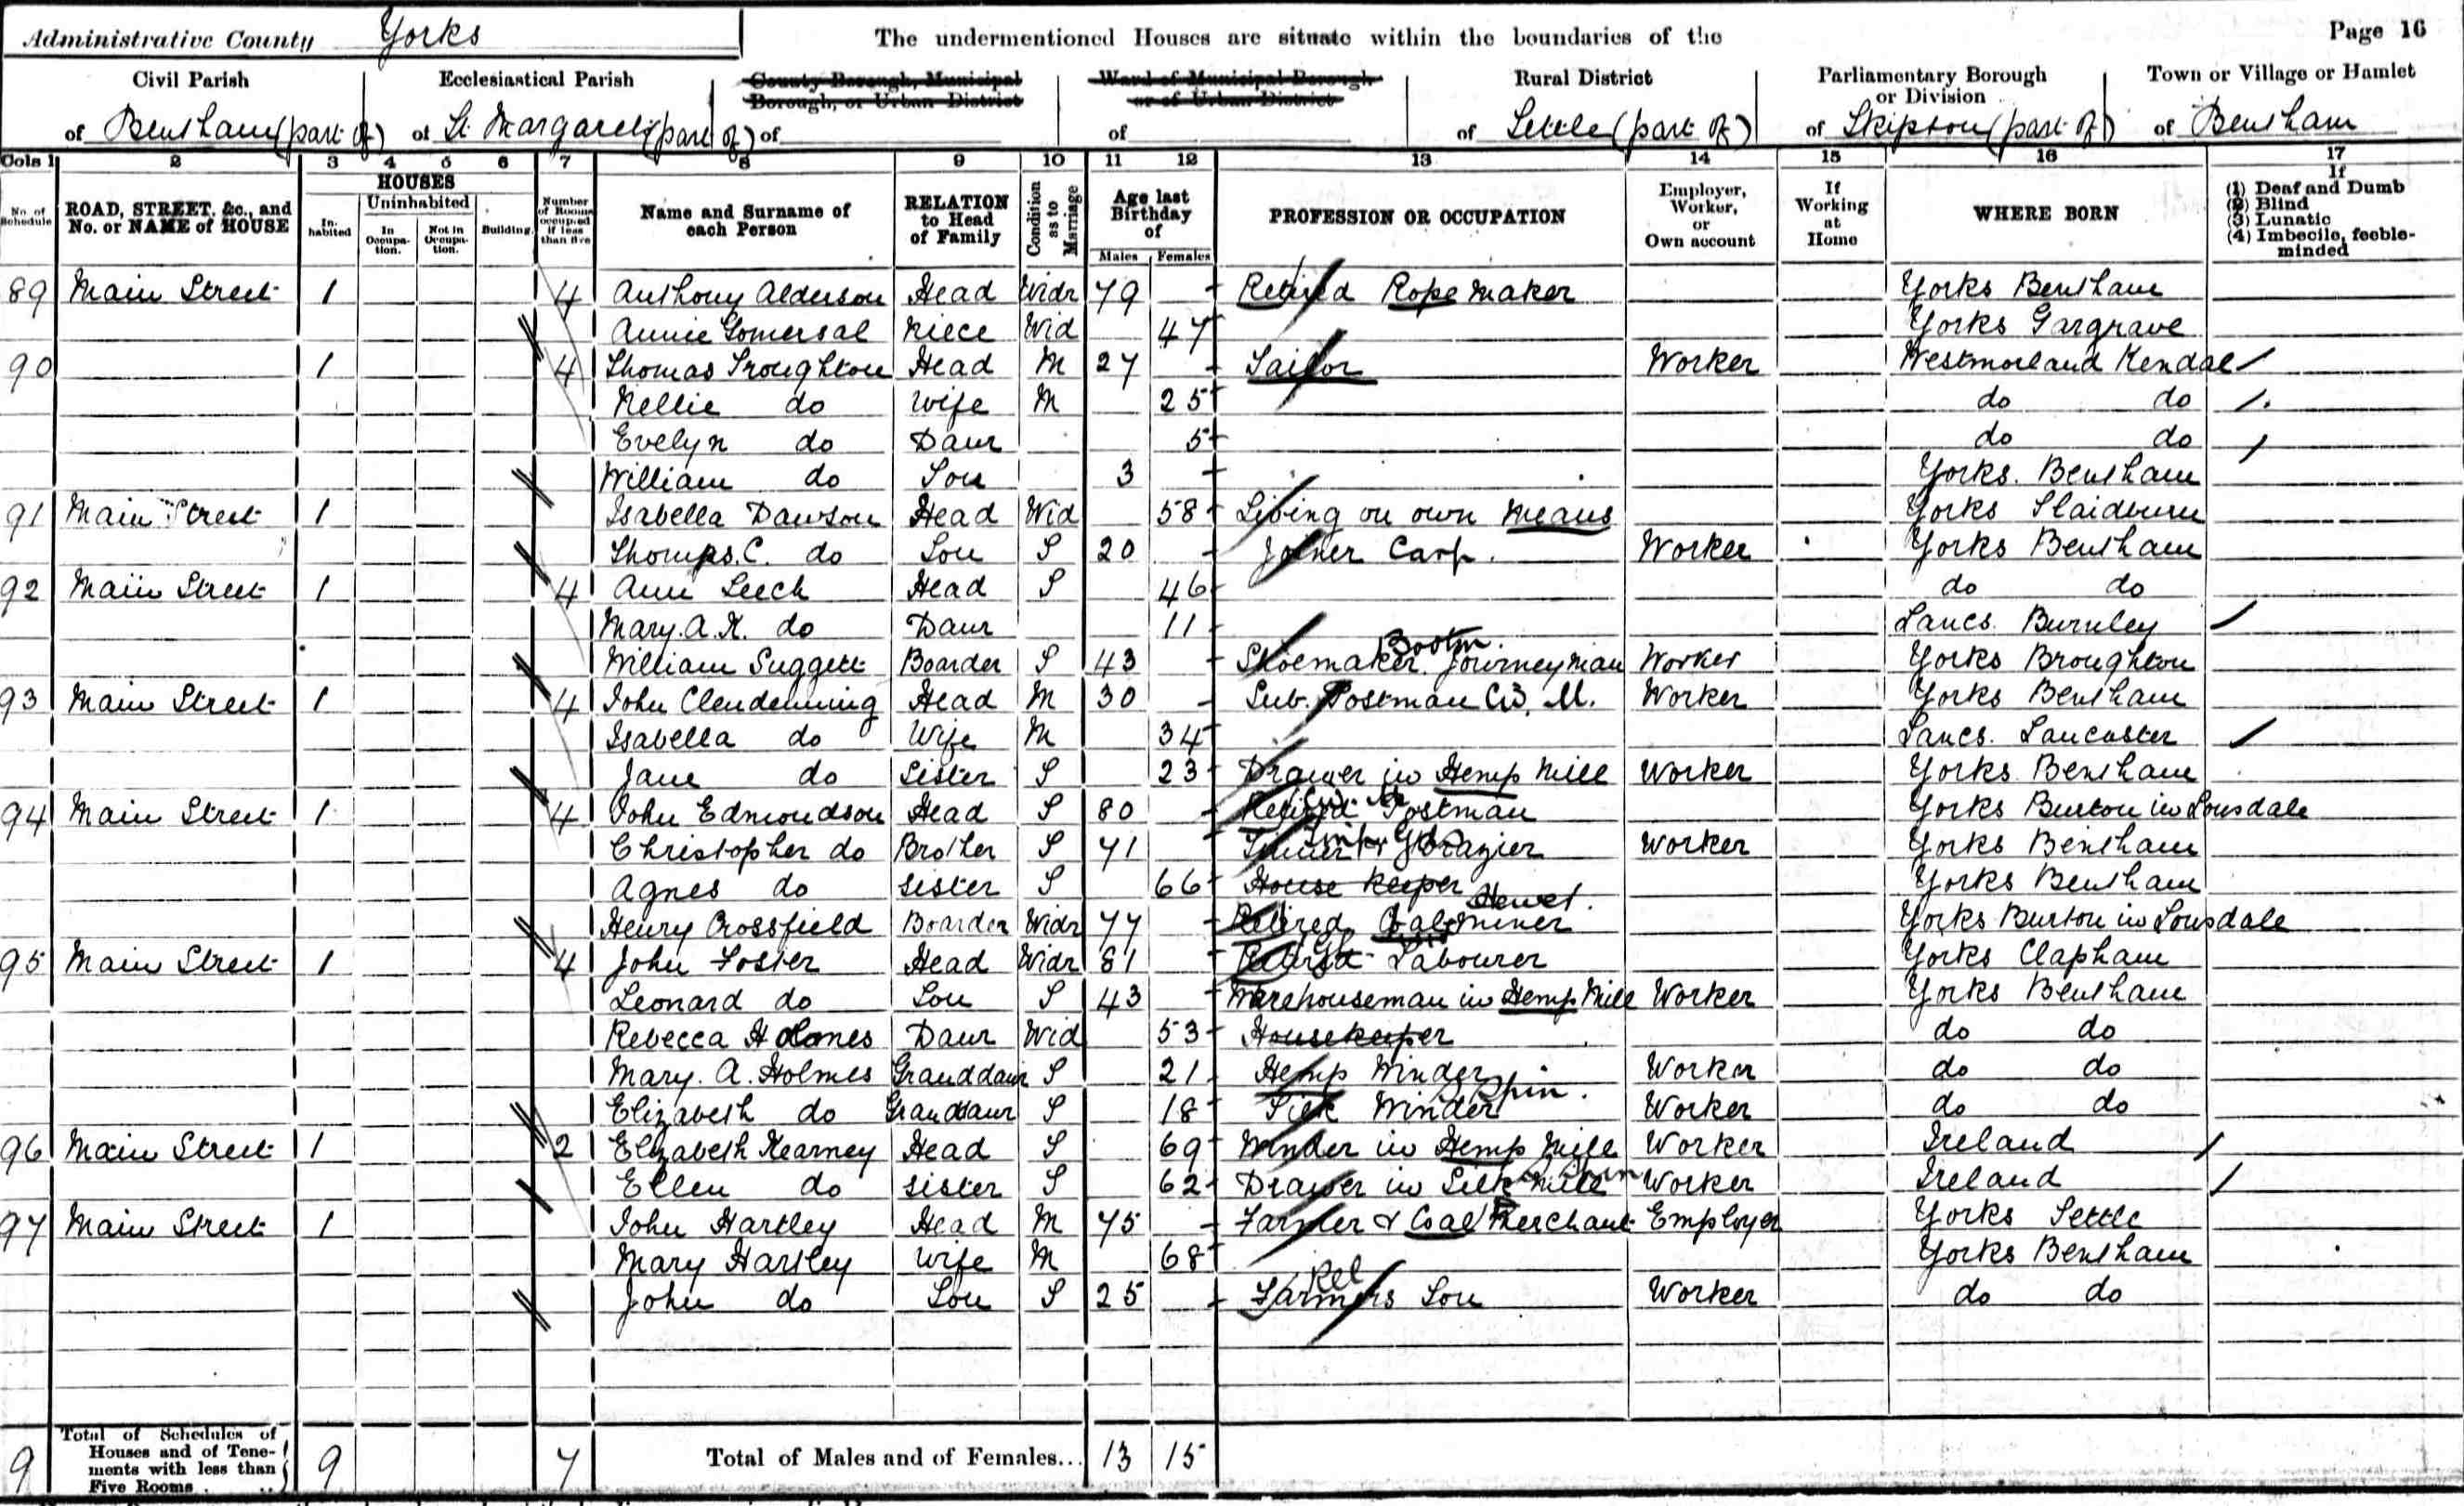 Administrative County Yorks
The undermentioned Houses are situate within the boundaries of the
Page 16
Civil Parish
of Bentham (part of)
Ecclesiastical Parish
of St. Margarets (part of)
County Borough, Municipal Borough, or Urban District
of
Ward of Municipal Borough or of Urban District
of
Rural District
of Settle (part of)
Parliamentary Borough or Division
of Skipton (part of)
Town or Village or Hamlet
of Bentham
Cols 1 2 3 4 5 6 7 8 9 10 11 12 13 14 15 16 17
No. of Schedule
ROAD, STREET, &c., and No. or NAME of HOUSE
HOUSES
Inhabited
Uninhabited
In Occupation.
Not in Occupation.
Building.
Number of Rooms occupied if less than five
Name and Surname of each Person
RELATION to Head of Family
Condition as to Marriage
Age last Birthday of
Males Females
PROFESSION OR OCCUPATION
Employer, Worker, or Own account
If Working at Home
WHERE BORN
If
(1) Deaf and Dumb
(2) Blind
(3) Lunatic
(4) Imbecile, feeble-minded
89 Main Street 1 4 Anthony Alderson Head Widr 79 Retired Rope Maker Yorks Bentham
Annie Somersal Niece Wid 47 Yorks Gargrave
90 1 4 Thomas Troughton Head M 27 Tailor Worker Westmorland Kendal
Nellie do Wife M 25 do do
Evelyn do Daur 5 do do
William do Son 3 Yorks. Bentham
91 Main Street 1 Isabella Dawson Head Wid 58 Living on own Means Yorks Slaidburn
Thomas. C. do Son S 20 Joiner Carp. Worker Yorks Bentham
92 Main Street 1 4 Ann Leech Head S 46 do do
Mary. A. K. do Daur 11 Lancs. Burnley
Bootm.
William Suggett Boarder S 43 Shoemaker. Journeyman Worker Yorks Broughton
93 Main Street 1 4 John Clendenning Head M 30 Sub. Postman Worker Yorks Bentham
Isabella do Wife M 34 Lancs. Lancaster
Jane do Sister S 23 Drawer in Hemp Mill Worker Yorks Bentham
94 Main Street 1 4 John Edmondson Head S 80 Retired Postman Yorks Burton in Lonsdale
Christopher do Brother S 71 Brazier Worker Yorks Bentham
Agnes do Sister S 66 House Keeper Yorks Bentham
Hewer.
Henry Crossfield Boarder Widr 77 Retired Coal Miner Yorks Burton in Lonsdale
95 Main Street 1 4 John Foster Head Widr 81 Retired Labourer Yorks Clapham
Leonard do Son S 43 Warehouseman in Hemp Mill Worker Yorks Bentham
Rebecca Holmes Daur Wid 53 Housekeeper do do
Mary. A. Holmes Granddaur S 21 Hemp Winder Worker do do
Spin.
Elizabeth do Grandaur S 18 Silk Winder Worker do do
96 Main Street 1 2 Elizabeth Kearney Head S 69 Winder in Hemp Mill Worker Ireland
Ellen do Sister S 62 Drawer in Silk Mill Worker Ireland
97 Main Street 1 John Hartley Head M 75 Farmer & Coal Merchant Employer Yorks Settle
Mary Hartley Wife M 68 Yorks Bentham
Rel
John do Son S 25 Farmers Son Worker do do
9 Total of Schedules of Houses and of Tenements with less than Five Rooms 9 7 Total of Males and of Females... 13 15